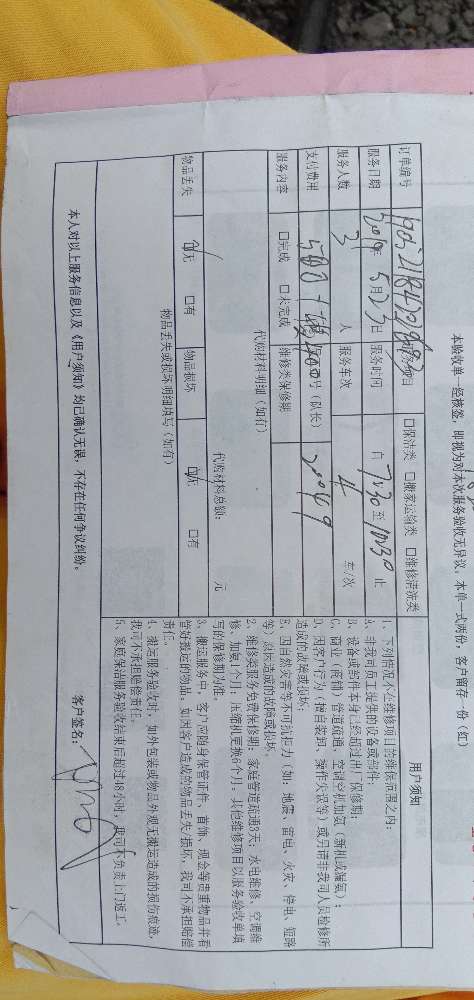 本验收单一经核签，即视为对本次服务验收无异议，本单一式两份，客户留存一份（红）
订单编号
口保洁类 口搬家运输类 口维修清洗类
服务日期 2019年 5月23日 服务时间 自 7:30 至 10:30 止
服务人数 3 人 服务车次 4 车/次
支付费用 号（队长） 200449
服务内容 口完成 口未完成 维修类保修期
代购材料明细（如有）
代购材料总额： 元
物品丢失 口无 口有 物品损坏 口无 口有
物品丢失或损坏明细填写（如有）
用户须知
1、下列情况不在维修项目的维保范围之内：
A、非我司员工提供的设备或部件；
B、设备或部件本身已经超过出厂保修期；
C、商业（商铺）管道疏通、空调空机加氟（新机或漏氟）；
D、因客户行为（擅自装卸、操作失误等）或另请非我司人员检修所
造成的故障或损坏；
E、因自然灾害等不可抗拒力（如：地震、雷电、火灾、停电、短路
等）原因造成的故障或损坏。
2、维修类服务免费保修期：家庭管道疏通3天，水电维修、空调维
修、加氟1个月，压缩机更换6个月，其他维修项目以服务验收单填
写的保修期为准。
3、搬运服务中，客户应随身保管证件、首饰、现金等贵重物品并看
管好搬运的物品，如因客户造成的物品丢失/损坏，我司不承担赔偿
责任。
4、搬运服务验收时，如外包装或物品外观无搬运造成的损伤痕迹，
我司不承担赔偿责任。
5、家庭保洁服务验收结束后超过48小时，我司不负责上门返工。
本人对以上服务信息以及《用户须知》均已确认无误，不存在任何争议纠纷。
客户签名：